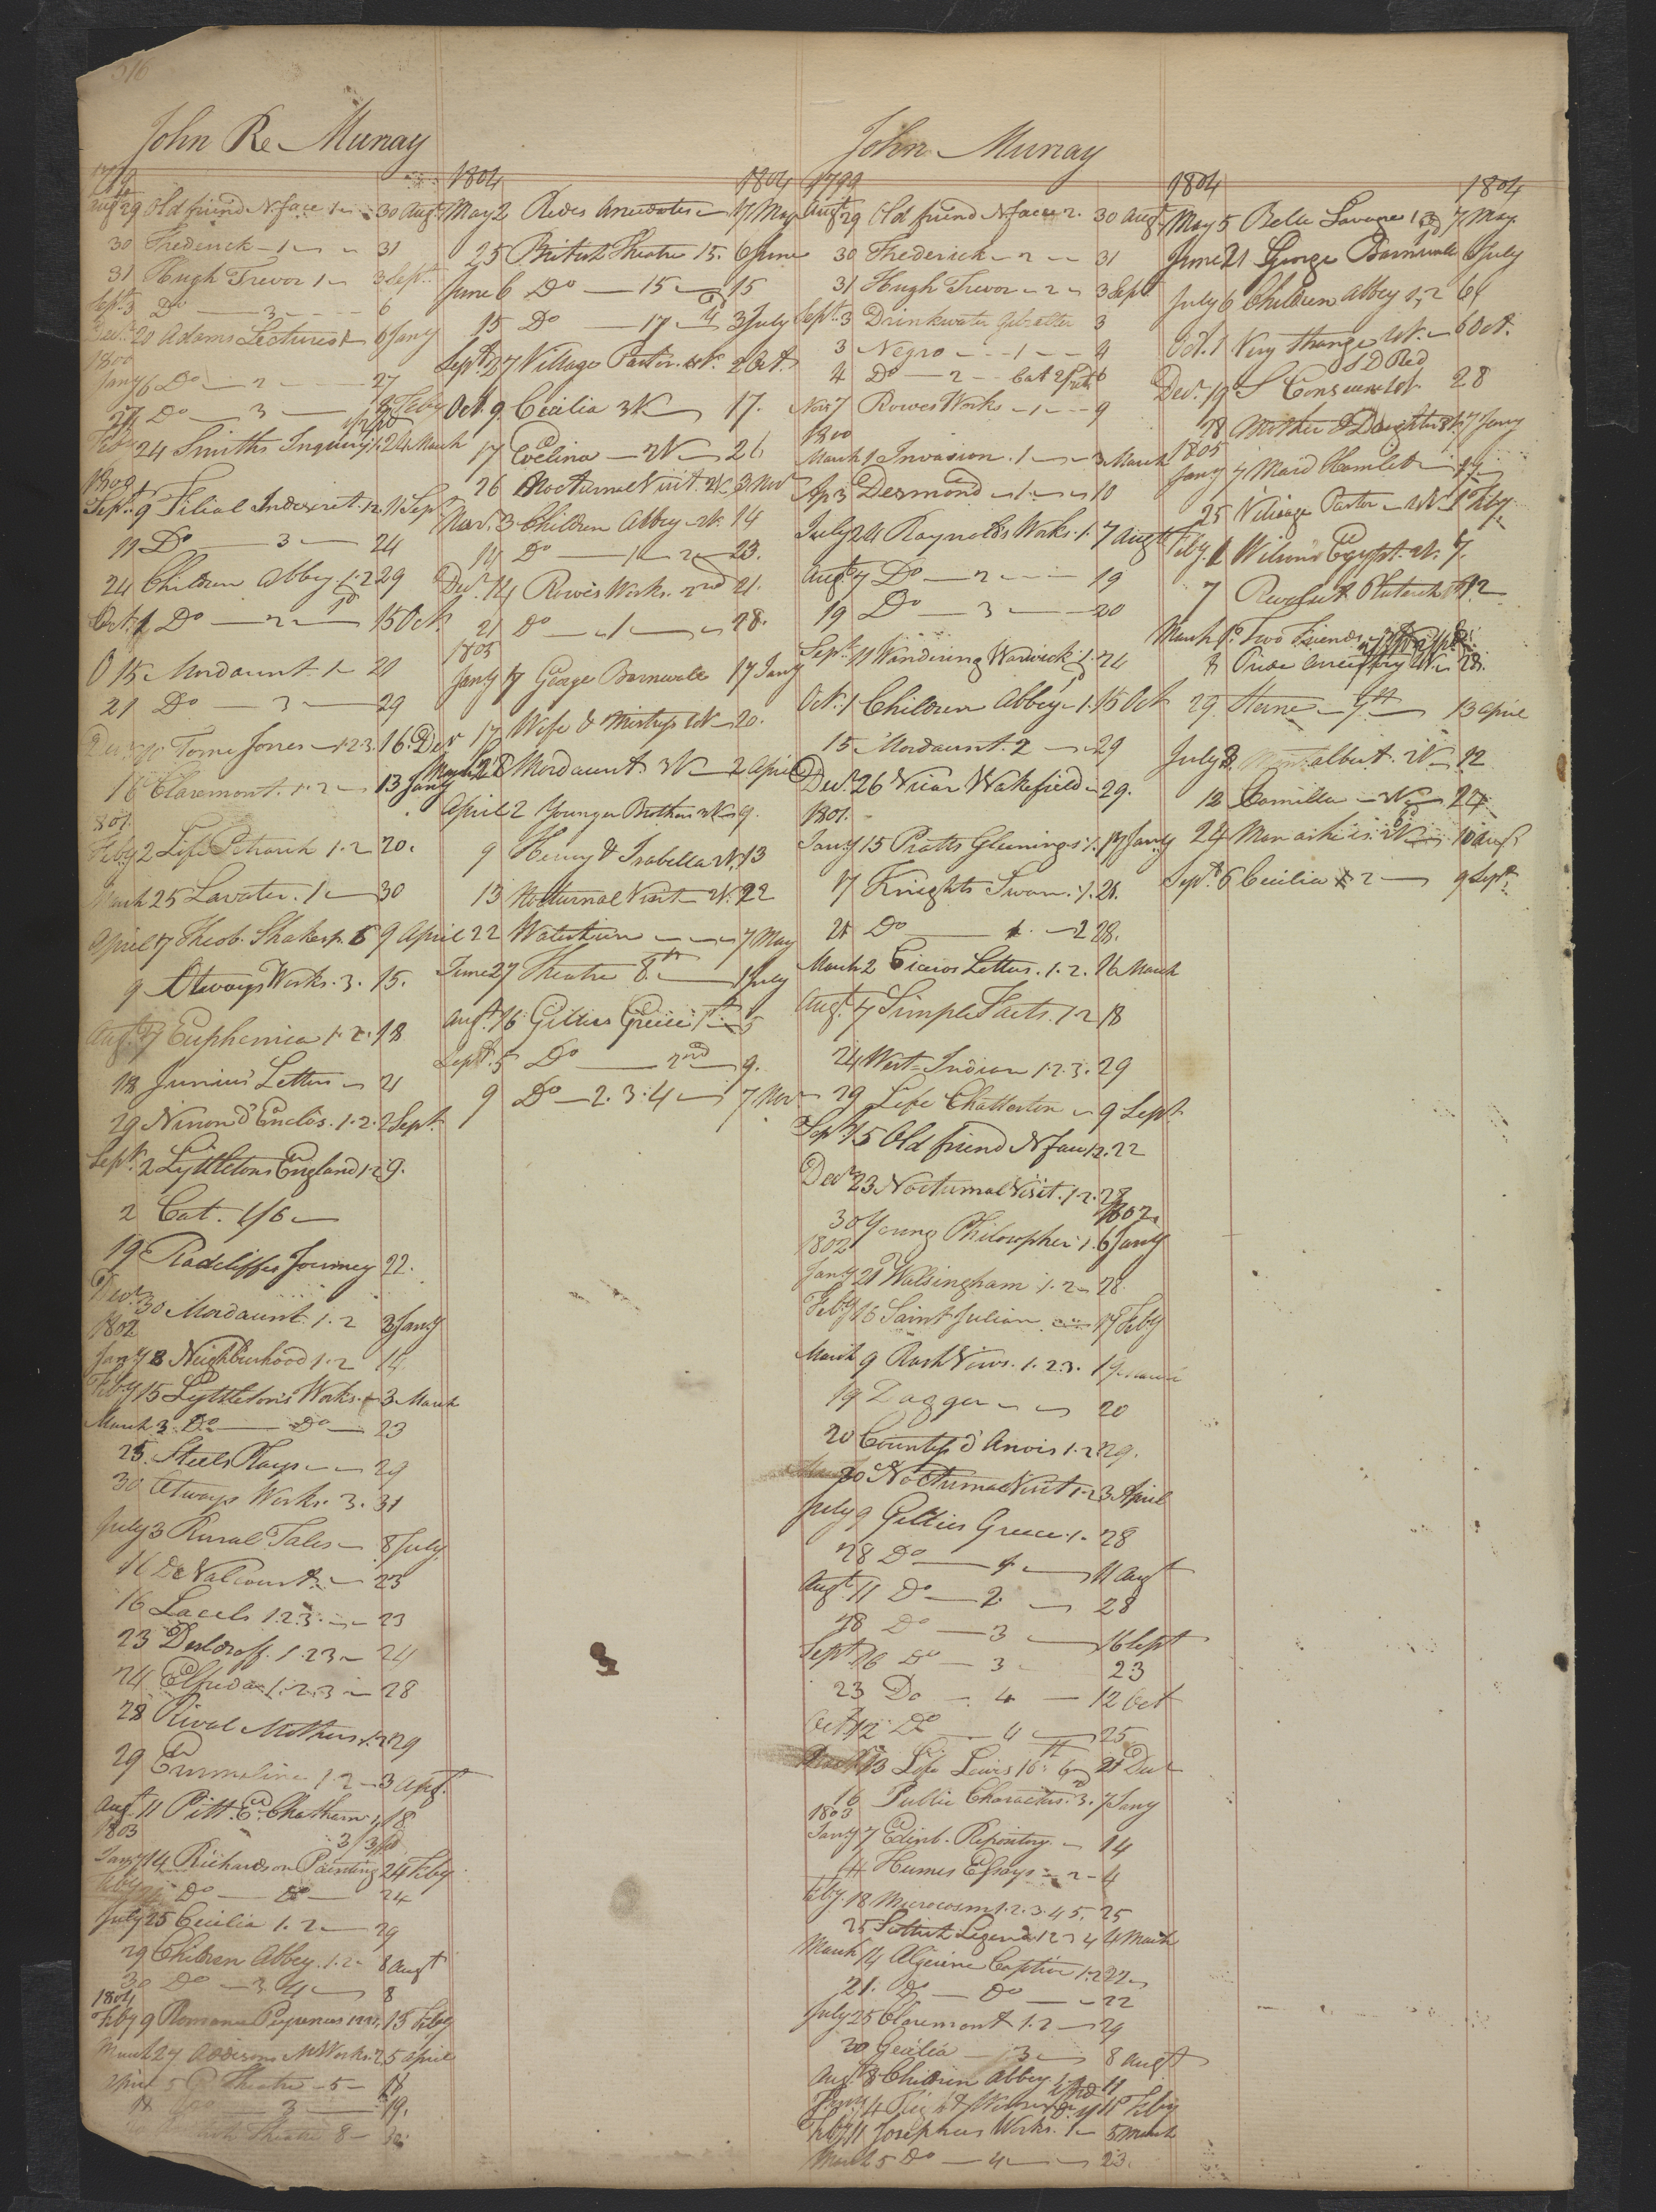 516
John Re Murray
1799
Augt 29 Old friend N face 1 30 Augt
30 Frederick 1 31
31 Hugh Trevor 1 3 Sept.
Sept. 3 Do 3 6
Decr. 20 Adams Lectures 1 6 Jany
1800
Jany 6 Do 2 27
27 Do 3
24 Smiths Inquiry 1.2 24 March
Sept. 9 Filial Indiscret. 1.2. 11 Sept
11 Do 3 24
24 Children Abbey. 1.2 29
Oct. 1 Do 2 15 Oct.
O 15 Mordaunt. 1 21
21 Do 3 29
Tome Jones 1.2.3. 16. Decr
16 Claremont. 1.2 13 Jany
1801.
Feby 2 Life Petrarch 1.2 20.
March 25 Lavater. 1 30
April 7 Theob. Shakesp. 6 9 April
9 Otways Works. 3. 15.
Augt. 7 Euphemia 1.2. 18
18 Junius' Letters 21
29 Ninon d'Enclos. 1.2. 2 Sept.
Sept. 2 Lyttletons England 1.2 9.
2 Cat. 1/6
19 Radcliffes Journey 22.
Decr. 30 Mordaunt. 1.2 3 Jany
1802
Jany 8 Neighbourhood 1.2 14.
Feby 15 Lyttleton's Works. 3 March
March 3. Do Do 23
25. Steels Plays 29
30 Otways Works. 3. 31
July 3 Rural Tales 8 July
16 De Valcourt. 23
16 Lacels 1.2.3. 23
23 Desloroff. 1.2.3 24
24 Elfrida 1.2.3 28
28 Rival Mothers 1.2 29
29 Emmeline 1.2 3 Augt.
Augt. 11 Pitt E. Chatham, 18
1803
Jany 14 Richardson Painting 24 Feby
Do Do 24
July 25 Cecilia 1.2 29
29 Children Abbey. 1.2. 8 Augt
30 Do 3 4 8
1804
Feby 9 Romance Pyrenees 13 Feby
March 27 Addisons Works. 5 April
5 B Theatre 5 18
18 Do 3 19.
Theatre 8
1804 1804
May 2 Redes Anecdotes 17 May
25 British Theatre 15. 6 June
June 6 Do 15 15
15 Do 17 3 July
Sept. 27 Village Pastor. 2 Oct.
Oct. 9 Cecilia 3 V 17.
17 Evelina 2 V 26
26 Nocturnal Visit. 2 V. 3 Nov
Nov. 3 Children Abbey 2 V. 14
14 Do 1 2 23.
Decr. 14 Rowes Works. 2nd 21.
21 Do 1 28.
1805
Jany 17 George Barnwale 17 Jany
17 Wife & Mistress 2 V 20.
March 28 Mordaunt. 3 V 2 April
April 2 Younger Brother 2 V 9.
9 Henry & Isabella 2 V. 13
13 Nocturnal Visit 2 V. 22
22 7 May
June 27 Theatre 8th 1 July
Augt. 16 Gillies Greece 1st 5
Sept. 5 Do 2nd 9.
9 Do 2. 3. 4 7 Nov
John Murray
1799
Augt 29 Old friend N face 2. 30 Augt
30 Frederick 2 31
31 Hugh Trevor 2 3 Sept
Sept. 3 Drinkwater Gibralter 3
3 Negro 1 4
4 Do 2 Cat 6
Nov 7 Rowes Works 1 9
1800
March 1 Invasion. 1 3 March
Ap 3 Desmond 1. 10
July 24 Raynolds Works. 1. 7 Augt
Augt. 7 Do 2 19
19 Do 3 20
Sept. 11 Wandering Warwick. 1. 24
Oct. 1 Children Abbey. 1. 15 Oct
15 Mordaunt. 2 29
Decr. 26 Vicar Wakefield 29.
1801.
Jany 15 Pratts Gleenings. 1. 17 Jany
17 Knights Swan. 1. 21.
21 Do 2 28.
March 2 Ciceros Letters. 1. 2. 16 March
Augt. 7 Simple Facts. 1.2 18
24 West Indian 1.2.3. 29
29 Life Chatterton 9 Sept.
Sept 15 Old friend N face 1.2. 22
Decr 23 Nocturnal Visit. 1.2. 28
1802
30 Young Philosopher 1. 6 Jany
1802
Jany 21 Walsingham 1.2 28
Feby 16 Saint Julian 17 Feby
March 9 Rash Vows. 1.2.3. 19 March
19 Dagger 20
20 Countess d'Anois 1.2 29.
30 Nocturnal Visit 1.2 3 April
July 9 Gillies Greece 1. 28
28 Do 1 11 Augt
Augt. 11 Do 2 28
28 Do 3 16 Sept
Sept. 16 Do 3 23
23 Do 4 12 Oct
Oct. 12 Do 4 25
13 Life Lewis 16th 6 21 Decr
16 Public Characters. 3. 7 Jany
1803
Jany 7 Edinb. Repository. 14
14 Humes Essays 2 4
Feby. 18 Microcosm 1.2.3.4.5. 25
25 Scottish Legends 1 2 3 4 4 March
March 14 Algerine Captive 1.2 22
21. Do Do 22
July 25 Claremont 1.2 29
30 Cecilia 3 8 Augt
Augt 8 Children Abbey. 11
Feby 11 Josephus Works. 1 5 March
March 5 Do 4 23.
1804 1804
May 5 Belle Savage 1 7 May
June 21 George Barnwale 6 July
July 6 Children Abbey 1, 2 6
Oct. 1 Very Strange 2 V. 6 Oct.
Decr. 19 S Conscience 28
28 Mother & Daughter 7 Jany
1805
Jany 7 Maid Hamlet 17
25 Village Pastor 2 V. 1 Feby
Feby. 1 Wilsons Egypt. 2 V. 7.
7 Plutarch 12
March 1 Two Friends
8 Pride Ancestry 28.
29 Sterne 9th 13 April
July 3. Montalbert. 2 V 12
12 Camilla 24
24 10 Augt
Sept. 6 Cecilia 2 9 Sept.